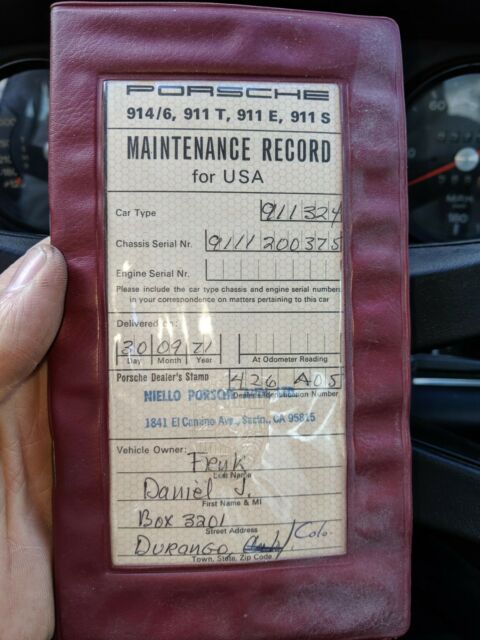 PORSCHE
914/6, 911 T, 911 E, 911 S
MAINTENANCE RECORD
for USA
Car Type 911324
Chassis Serial Nr. 9111200375
Engine Serial Nr.
Please include the car type chassis and engine serial numbers
in your correspondence on matters pertaining to this car
Delivered on:
30 09 71
Day Month Year At Odometer Reading
Porsche Dealer's Stamp 426 A05
NIELLO PORSCHE Dealer Identification Number
1841 El Camino Ave., Sacto., CA 95815
Vehicle Owner:
Last Name
Daniel J.
First Name & MI
Box 3201
Street Address
DURANGO, Colo.
Town, State, Zip Code
60